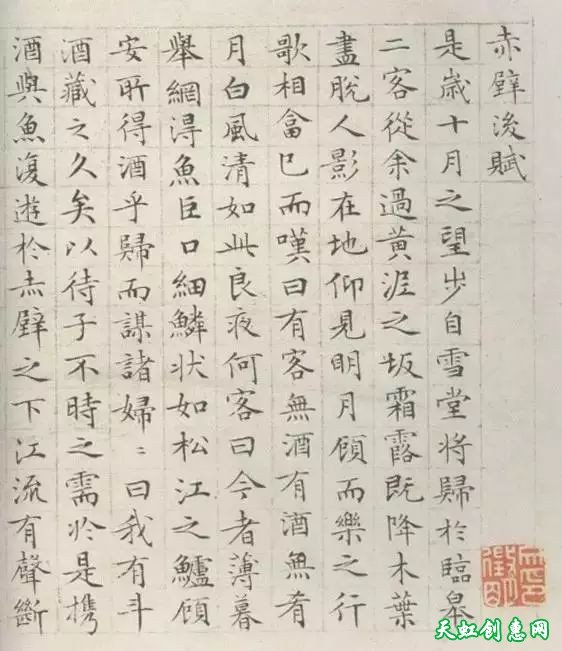 赤壁後賦
是歲十月之望步自雪堂將歸於臨皋
二客從余過黃泥之坂霜露既降木葉
盡脫人影在地仰見明月顧而樂之行
歌相畣已而嘆曰有客無酒有酒無肴
月白風清如此良夜何客曰今者薄暮
舉網得魚巨口細鱗狀如松江之鱸顧
安所得酒乎歸而謀諸婦〻曰我有斗
酒藏之久矣以待子不時之需於是攜
酒與魚復遊於赤壁之下江流有聲斷
天虹创意网